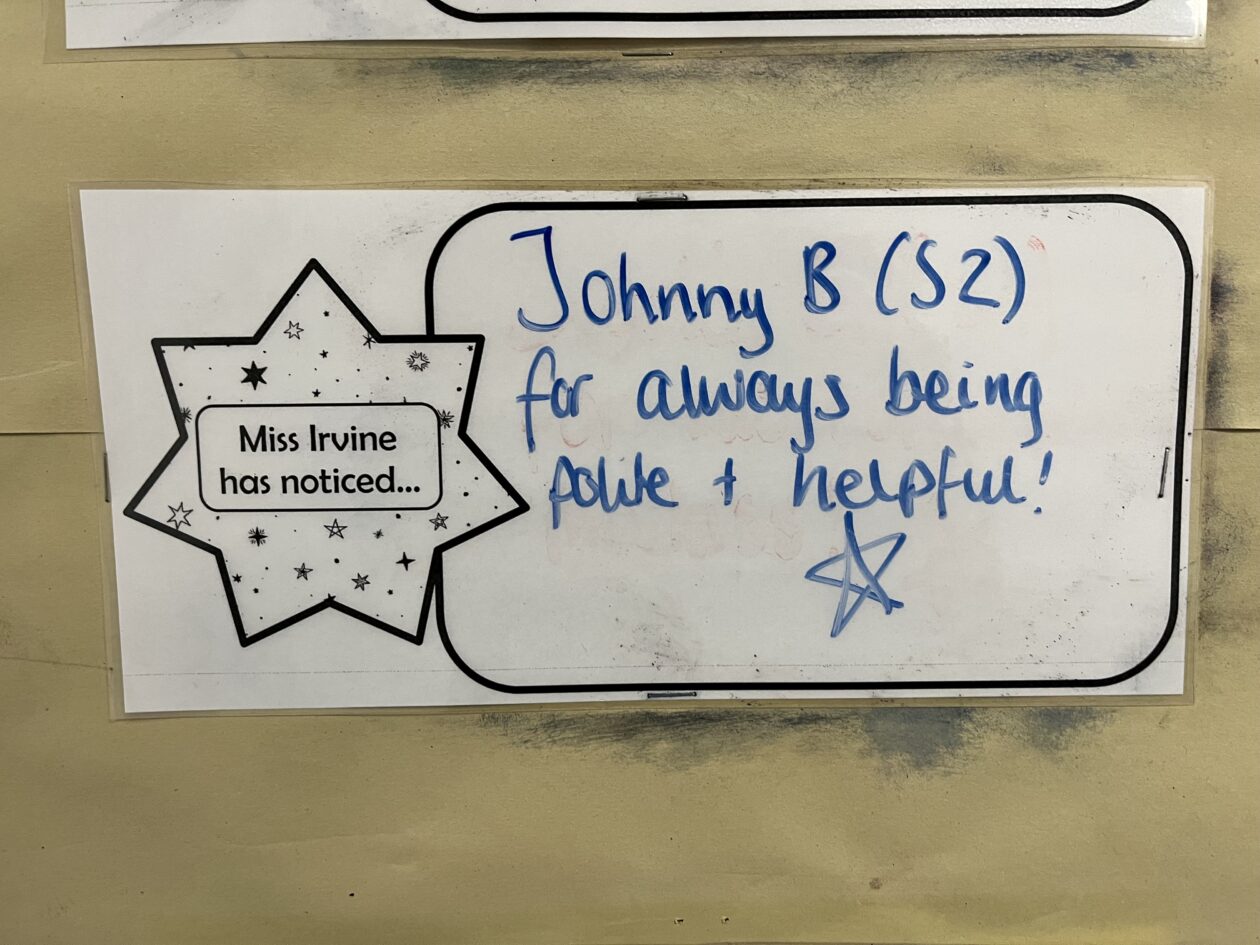 Miss Irvine
has noticed...
Johnny B (S2)
for always being
polite + helpful!